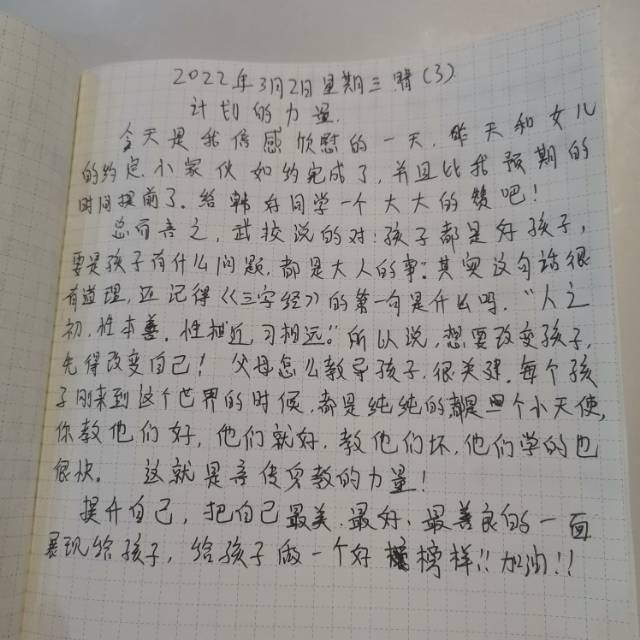 2022年3月2日星期三晴(3)
计划的力量.
今天是我倍感欣慰的一天.昨天和女儿
的约定小家伙如约完成了,并且比我预期的
时间提前了.给韩好同学一个大大的赞吧!
总而言之,武校说的对:孩子都是好孩子,
要是孩子有什么问题,都是大人的事.其实这句话很
有道理,还记得《《三字经》》的第一句是什么吗."人之
初,性本善.性相近,习相远."所以说,想要改变孩子,
先得改变自己!父母怎么教导孩子.很关键.每个孩
子刚来到这个世界的时候,都是纯纯的都是一个小天使,
你教他们好,他们就好.教他们坏,他们学的也
很快.这就是言传身教的力量!
提升自己,把自己最美.最好、最善良的一面
展现给孩子,给孩子做一个好榜样!!加油!!